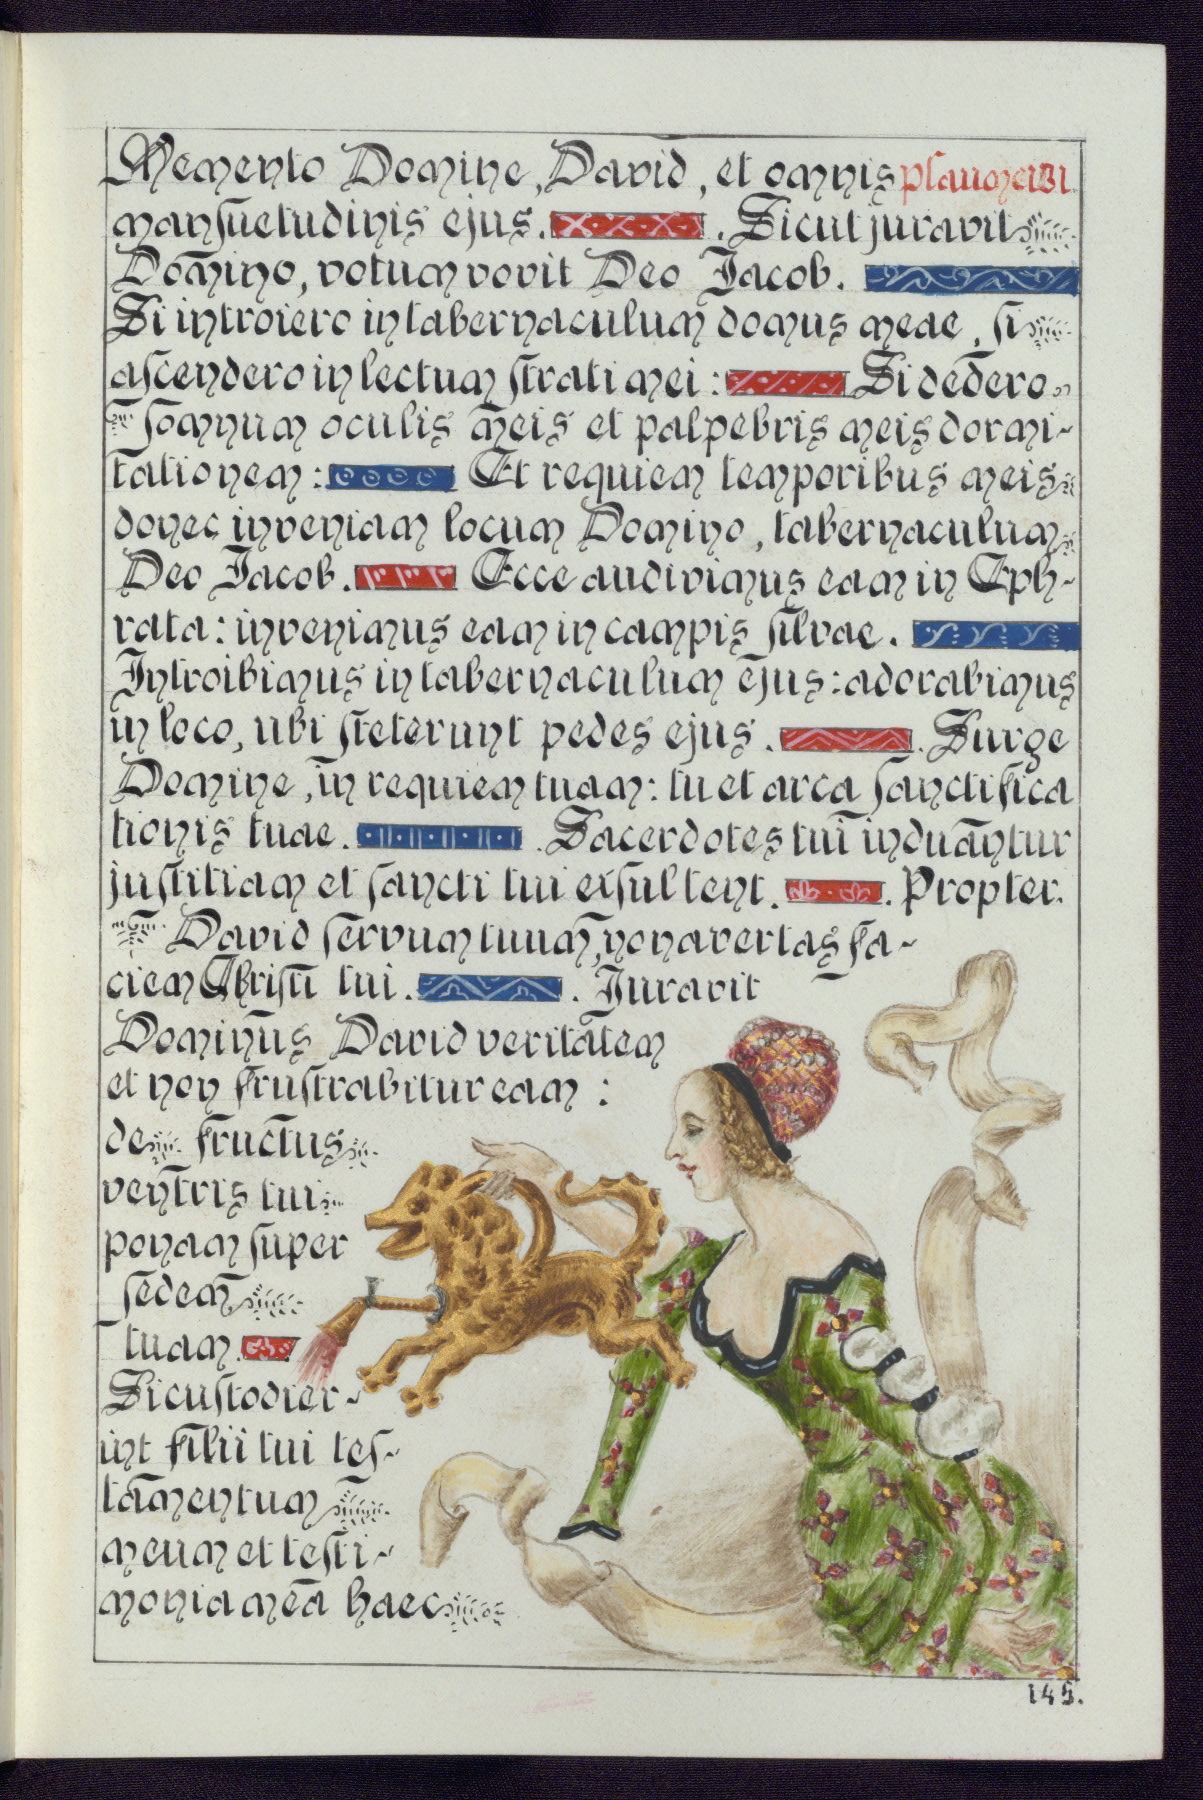 Memento Domine, David, et omnis
mansuetudinis ejus. . Sicut juravit
Domino, votum vovit Deo Jacob.
Si introiero in tabernaculum domus meae, si
ascendero in lectum strati mei: Si dedero
somnum oculis meis et palpebris meis dormi-
tationem: Et requiem temporibus meis
donec inveniam locum Domino, tabernaculum
Deo Jacob. Ecce audivimus eam in Eph-
rata: invenimus eam in campis silvae.
Introibimus in tabernaculum ejus: adorabimus
in loco, ubi steterunt pedes ejus. . Surge
Domine, in requiem tuam: tu et arca sanctifica
tionis tuae. . Sacerdotes tui induantur
justitiam et sancti tui exsultent. . Propter
David servum tuum, non avertas fa-
ciem Christi tui. . Juravit
Dominus David veritatem
et non frustrabitur eam:
de fructus
ventris tui
ponam super
sedem
tuam.
Si custodier-
int filii tui tes-
tamentum
meum et testi-
monia mea haec
145.